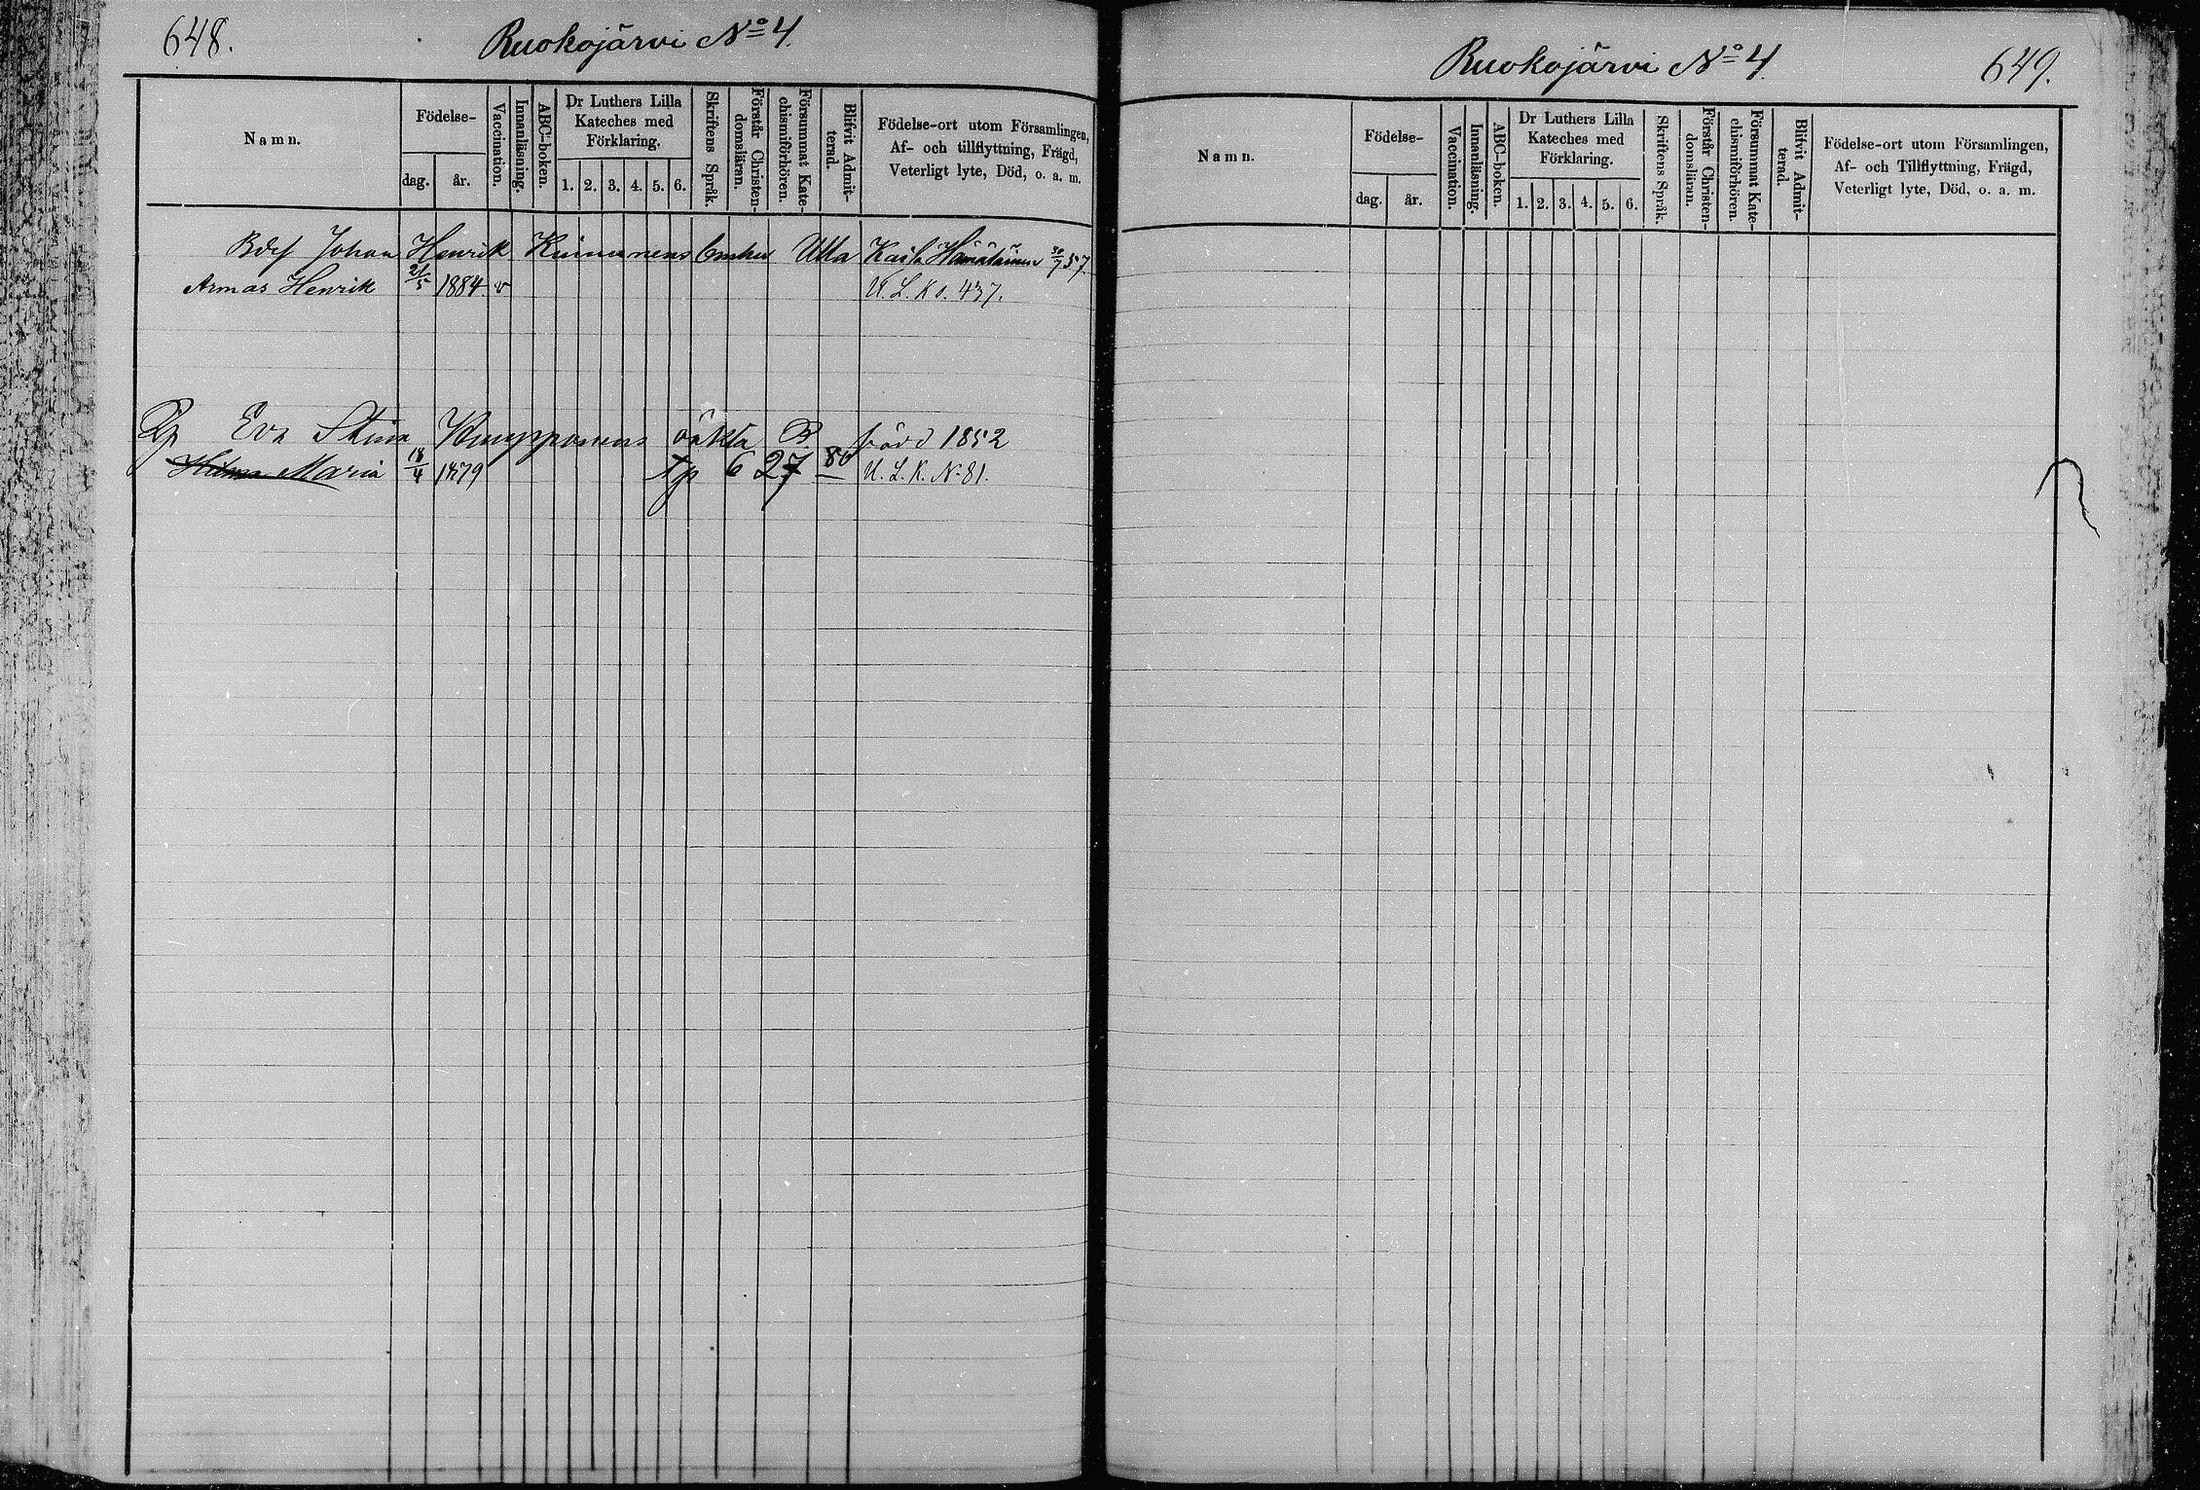 648.
Ruokojärvi No 4.
Namn.
Födelse-
dag.
år.
Vaccination.
Innanläsning.
ABC-boken.
Dr Luthers Lilla
Kateches med
Förklaring.
1. 2. 3. 4. 5. 6.
Skriftens Språk.
Förstår Christen-
domsläran.
Försummat Kate-
chismiförhören.
Blifvit Admit-
terad.
Födelse-ort utom Församlingen,
Af- och tillflyttning, Frägd,
Veterligt lyte, Död, o. a. m.
Johan Henrik Ulla Kaisa Hämäläinen 57
Armas Henrik 21/5 1884. v U. L. K. s. 437.
Eva Stina oäkta B. född 1852
Maria 18/4 1879 627 80 U. L. K. N. 81.
Ruokojärvi No 4.
649.
Namn.
Födelse-
dag.
år.
Vaccination.
Innanläsning.
ABC-boken.
Dr Luthers Lilla
Kateches med
Förklaring.
1. 2. 3. 4. 5. 6.
Skriftens Språk.
Förstår Christen-
domsläran.
Försummat Kate-
chismiförhören.
Blifvit Admit-
terad.
Födelse-ort utom Församlingen,
Af- och Tillflyttning, Frägd,
Veterligt lyte, Död, o. a. m.